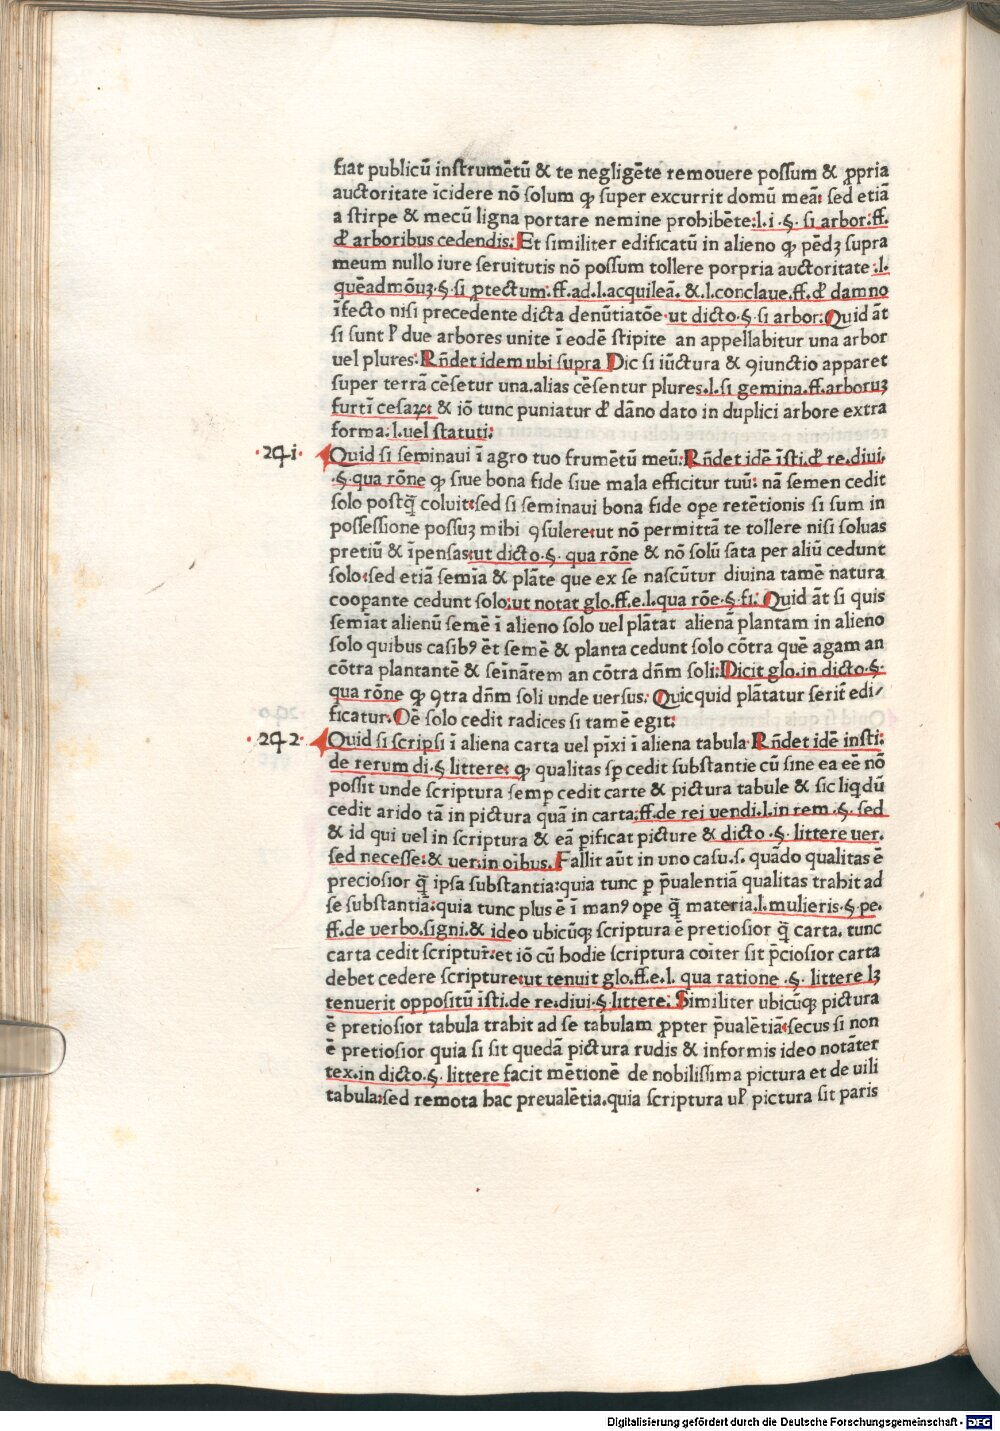 fiat publicū inſtrumētū & te negligēte remouere poſſum & ꝓpria
auctoritate īcidere nō ſolum ꝙ ſuper excurrit domū meā: ſed etiā
a ſtirpe & mecū ligna portare nemine prohibēte:l.i.§. ſi arbor:ff.
đ arboribus cedendis: Et ſimiliter edificatū in alieno ꝙ pēdꝫ ſupra
meum nullo iure ſeruitutis nō poſſum tollere porpria auctoritate:l.
quēadmōuꝫ.§.ſi ꝓtectum:ff.ad.l.acquileā.&.l.conclaue.ff.đ damno
īfecto niſi precedente dicta denūtiatōe.ut dicto.§.ſi arbor:Quid āt
ſi ſunt ł due arbores unite ī eodē ſtipite an appellabitur una arbor
uel plures:Rn̄det idem ubi ſupra Dic ſi iūctura & ꝯiunctio apparet
ſuper terrā cēſetur una.alias cēſentur plures.l.ſi gemina.ff.arboruꝫ
furtī ceſaꝝ: & iō tunc puniatur đ dāno dato in duplici arbore extra
forma:l.uel ſtatuti:
·241· Quid ſi ſeminaui ī agro tuo frumētū meū:Rn̄det idē īſti.đ re.diui.
.§.qua rōne ꝙ ſiue bona fide ſiue mala efficitur tuū: nā ſemen cedit
ſolo poſtq̄ coluit:ſed ſi ſeminaui bona fide ope retētionis ſi ſum in
poſſeſſione poſſuꝫ mihi ꝯſulere:ut nō permittā te tollere niſi ſoluas
pretiū & īpenſas:ut dicto.§. qua rōne & nō ſolū ſata per aliū cedunt
ſolo:ſed etiā ſemīa & plāte que ex ſe naſcūtur diuina tamē natura
cooꝑante cedunt ſolo:ut notat glo.ff.e.l.qua rōe.§.fi. Quid āt ſi quis
ſemīat alienū ſemē ī alieno ſolo uel plātat alienā plantam in alieno
ſolo quibus caſibꝰ ēt ſemē & planta cedunt ſolo cōtra quē agam an
cōtra plantantē & ſeīnātem an cōtra dn̄m ſoli:Dicit glo.in dicto.§.
qua rōne ꝙ ꝯtra dn̄m ſoli unde uerſus: Quicquid plātatur ſerit̄ edi/
ficatur. Oē ſolo cedit radices ſi tamē egit:
·242· Quid ſi ſcripſi ī aliena carta uel pīxi ī aliena tabula Rn̄det idē inſti:
de rerum di.§ littere: ꝙ qualitas ſꝑ cedit ſubſtantie cū ſine ea eē nō
poſſit unde ſcriptura ſemꝑ cedit carte & pictura tabule & ſic liqdū
cedit arido tā in pictura quā in carta:ff.de rei uendi.l.in rem.§. ſed
& id qui uel in ſcriptura & eā pificat picture & dicto.§. littere uer.
ſed neceſſe:& uer.in oibus. Fallit aūt in uno caſu.ſ. quādo qualitas ē
precioſior q̄ ipſa ſubſtantia:quia tunc ꝑ p̄ualentiā qualitas trahit ad
ſe ſubſtantiā:quia tunc plus ē ī manꝰ ope q̄ materia.l.mulieris.§.pe.
ff.de uerbo.ſigni.& ideo ubicūqꝫ ſcriptura ē pretioſior q̄ carta. tunc
carta cedit ſcriptur̄:et iō cū hodie ſcriptura coīter ſit p̄cioſior carta
debet cedere ſcripture:ut tenuit glo.ff.e.l. qua ratione .§. littere lꝫ
tenuerit oppoſitū īſti.de re.diui.§.littere. Similiter ubicūqꝫ pictura
ē pretioſior tabula trahit ad ſe tabulam ꝓpter p̄ualētiā:ſecus ſi non
ē pretioſior quia ſi ſit quedā pictura rudis & informis ideo notāter
tex.in dicto.§. littere facit mētionē de nobiliſſima pictura et de uili
tabula:ſed remota hac preualētia.quia ſcriptura uł pictura ſit paris
Digitalisierung gefördert durch die Deutsche Forschungsgemeinschaft - DFG